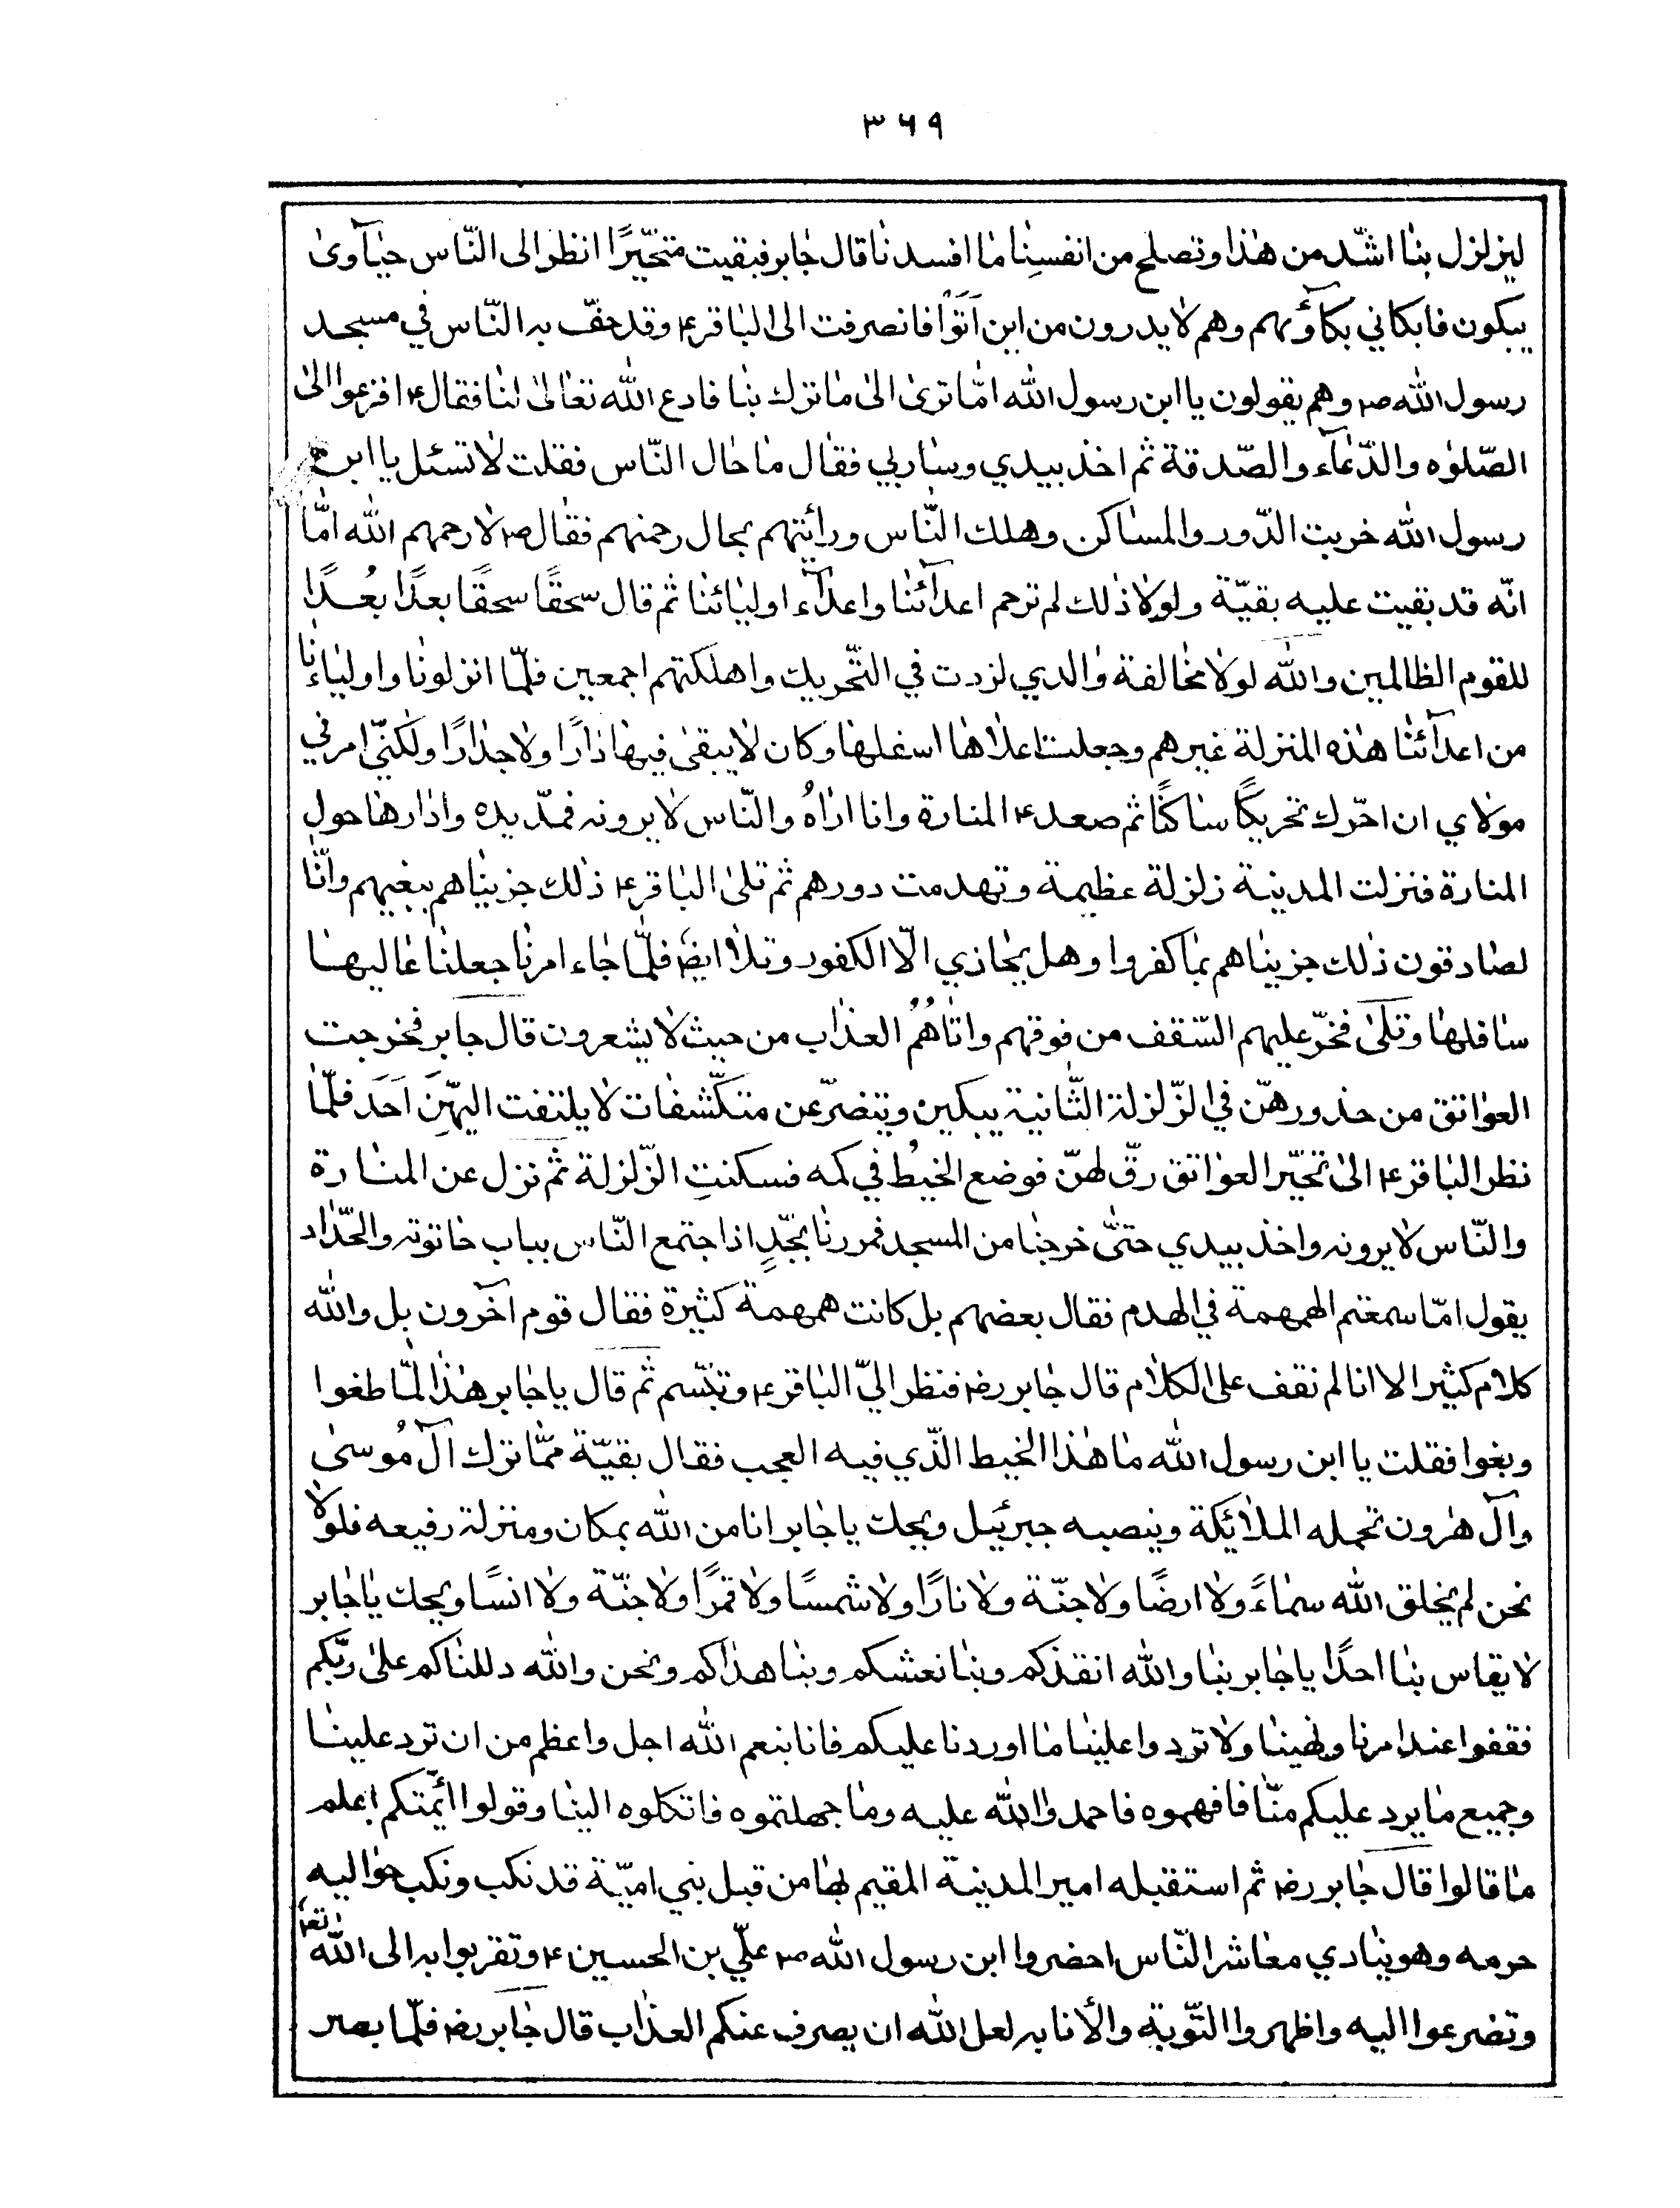 ٣٦٩
ليزلزل بنا اشدّ من هذا وتصلح من انفسنا ما افسدنا قال جابر فبقيت متحيّرًا انظر الى النّاس حيآوى
يبكون فابكاني بكآؤهم وهم لا يدرون من اين اَتَوْا فانصرفت الى الباقر ع وقد حفّ به النّاس في مسجد
رسول الله ص وهم يقولون يا ابن رسول الله امّا ترى الى ما نزل بنا فادع الله تعالى لنا فقال ع افزعوا الى
الصّلوه والدّعآء والصّدقة ثم اخذ بيدي وسار بي فقال ما حال النّاس فقلت لا تسئل يا ابن
رسول الله خربت الدّور والمساكن وهلك النّاس ورأيتهم بحال رحمتهم فقال ص لا رحمهم الله امّا
انّه قد بقيت عليه بقيّة ولولا ذلك لم ترحم اعدآئنا واعدآء اوليائنا ثم قال سحقًا سحقًا بعدًا بُعدًا
للقوم الظالمين والله لولا مخالفة والدي لزدت في التّحريك واهلكتهم اجمعين فلمّا انزلونا واولياءنا
من اعدآئنا هذه المنزلة غيرهم وجعلت اعلاها اسفلها وكان لا يبقى فيها دارًا ولا جدارًا ولكنّي امرني
مولاي ان احرّك تحريكًا ساكنًا ثم صعد ع المنارة وانا اراهُ والنّاس لا يرونه فمدّ يده وادارها حول
المنارة فنزلت المدينة زلزلة عظيمة وتهدمت دورهم ثم تلى الباقر ع ذلك جزيناهم ببغيهم وانّا
لصادقون ذلك جزيناهم بما كفروا وهل يجازي الّا الكفور وتلا ايضً فلمّا جاء امرنا جعلنا عاليها
سافلها وتلى فخرّ عليهم السّقف من فوقهم واتاهُمُ العذاب من حيث لا يشعرون قال جابر فخرجت
العواتق من خذورهنّ في الزّلزلة الثّانية يبكين ويتضرّعن متكّشفات لا يلتفت اليهّن اَحَد فلمّا
نظر الباقر ع الى تحيّر العواتق رقّ لهنّ فوضع الخيط في كمه فسكنت الزّلزلة ثم نزل عن المنارة
والنّاس لا يرونه واخذ بيدي حتّى خرجنا من المسجد فمررنا بحّدٍ اذا جتمع النّاس بباب خانوته والحّداد
يقول امّا سمعتم الهمهمة في الهدم فقال بعضهم بل كانت همهمة كثيرة فقال قوم آخرون بل والله
كلام كثير الا انا لم نقف على الكلام قال جابر رض فنظر اليّ الباقر ع وتبّسم ثم قال يا جابر هذا لمّا طغوا
وبغوا فقلت يا ابن رسول الله ما هذا الخيط الّذي فيه العجب فقال بقيّة ممّا ترك آل مُوسى
وآل هرون تحمله الملائكة وينصبه جبرئيل ويحك يا جابر انا من الله بمكان ومنزلة رفيعه فلولا
نحن لم يخلق الله سماءً ولا ارضًا ولا جنّة ولا نارًا ولا شمسًا ولا قمرًا ولا جنّة ولا انسًا ويحك يا جابر
لا يقاس بنا احدًا يا جابر بنا والله انقذكم وبنا نعشكم وبنا هداكم ونحن والله دللناكم على ربّكم
فقفوا عند امرنا ونهينا ولا تردوا علينا ما اوردنا عليكم فانا بنعم الله اجل واعظم من ان ترد علينا
وجميع ما يرد عليكم منّا فافهموه فاحمدوا الله عليه وما جهلتموه فاتكلوه الينا وقولوا ائمّتكم اعلم
ما قالوا قال جابر رض ثم استقبله امير المدينة المقيم بها من قبل بني اميّة قد نكب ونكب حواليه
حرمه وهو ينادي معاشر النّاس احضروا ابن رسول الله ص علّي بن الحسين ع وتقربوا به الى الله تع
وتضرعوا اليه واظهروا التّوبة والأنابه لعل الله ان يصرف عنكم العذاب قال جابر رض فلمّا بصر